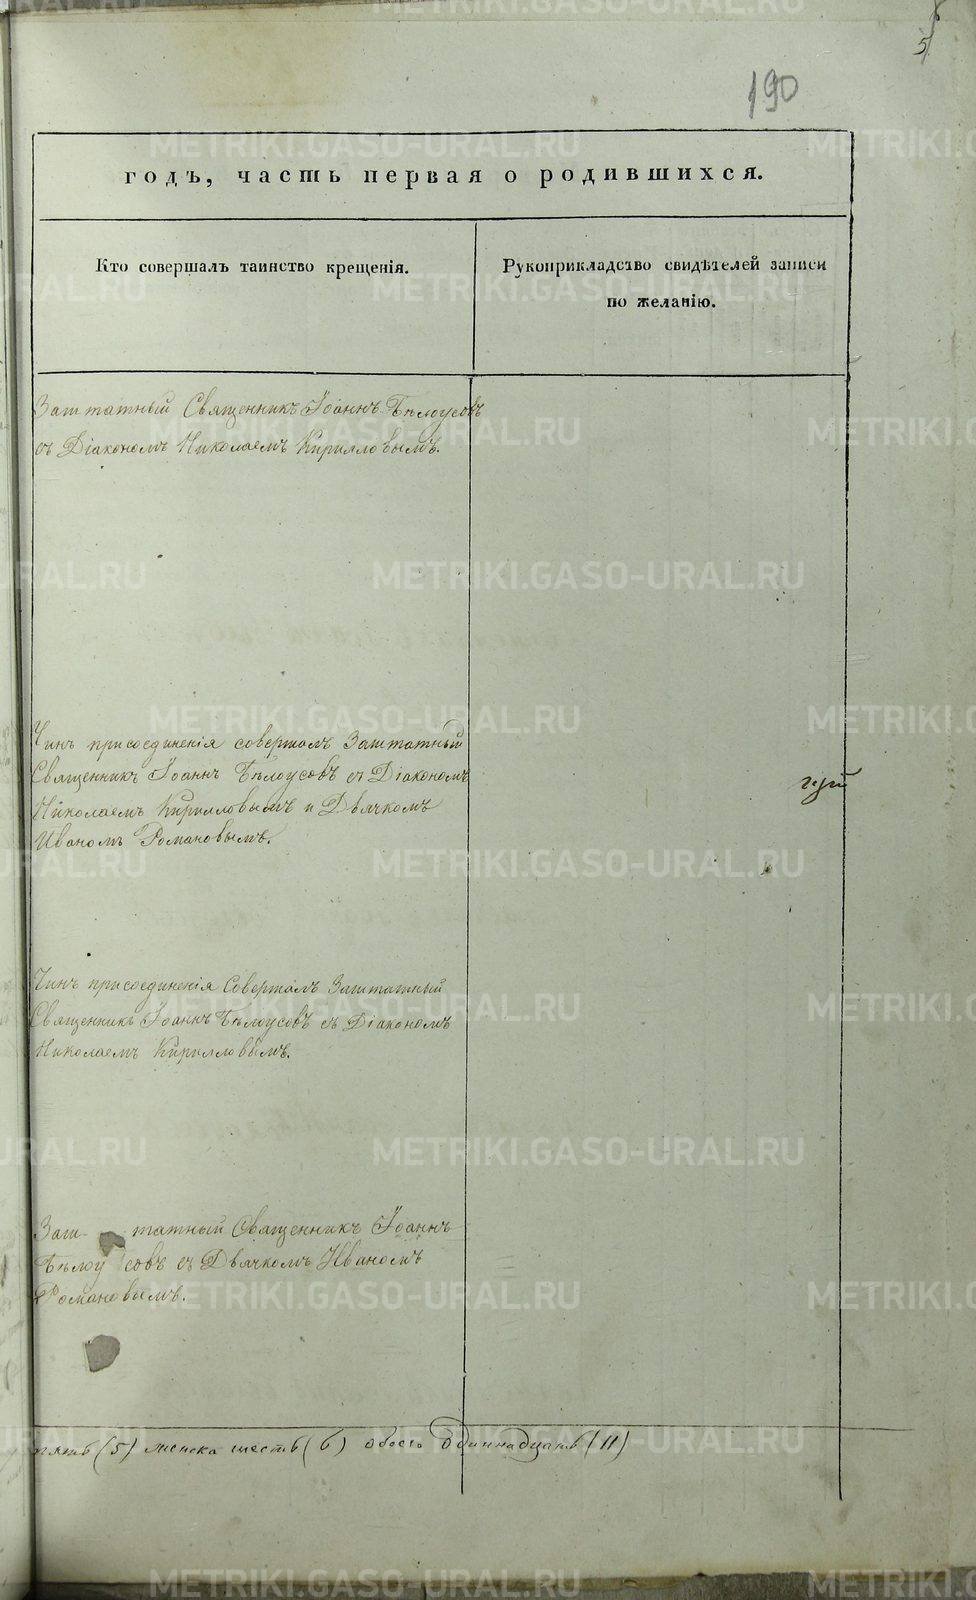 5
190
годъ, часть первая о родившихся.
Кто совершалъ таинство крещенія.
Рукоприкладство свидѣтелей записи
по желанію.
Заштатный Священникъ Іоаннъ Бѣлоусовъ
съ Діакономъ Николаемъ Кирилловымъ.
Чинъ присоединенія совершалъ Заштатный
Священникъ Іоаннъ Бѣлоусовъ съ Діакономъ
Николаемъ Кирилловымъ и Дьячкомъ
Иваномъ Романовымъ.
Чинъ присоединенія Совершалъ Заштатный
Священникъ Іоаннъ Бѣлоусовъ съ Діакономъ
Николаемъ Кирилловымъ.
Заштатный Священникъ Іоаннъ
Бѣлоусовъ съ Дьячкомъ Иваномъ
Романовымъ.
пять (5) женска шесть (6) обоего одиннадцать (11)
METRIKI.GASO-URAL.RU